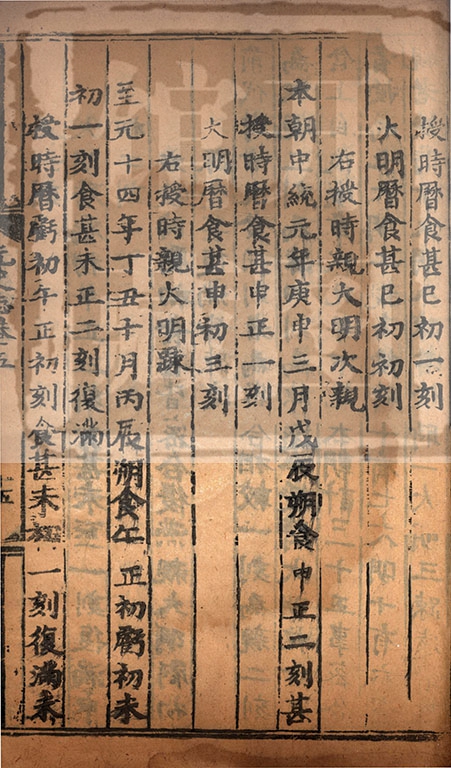 授時曆食甚巳初一刻
大明曆食甚巳初初刻
右授時親大明次親
本朝中統元年庚申三月戊辰朔食申正二刻甚
授時曆食甚申正一刻
大明曆食甚申初三刻
右授時親大明疎
至元十四年丁丑十月丙辰朔食午正初虧初未
初一刻食甚未正二刻復滿
授時曆虧初午正初刻食甚未初一刻復滿未